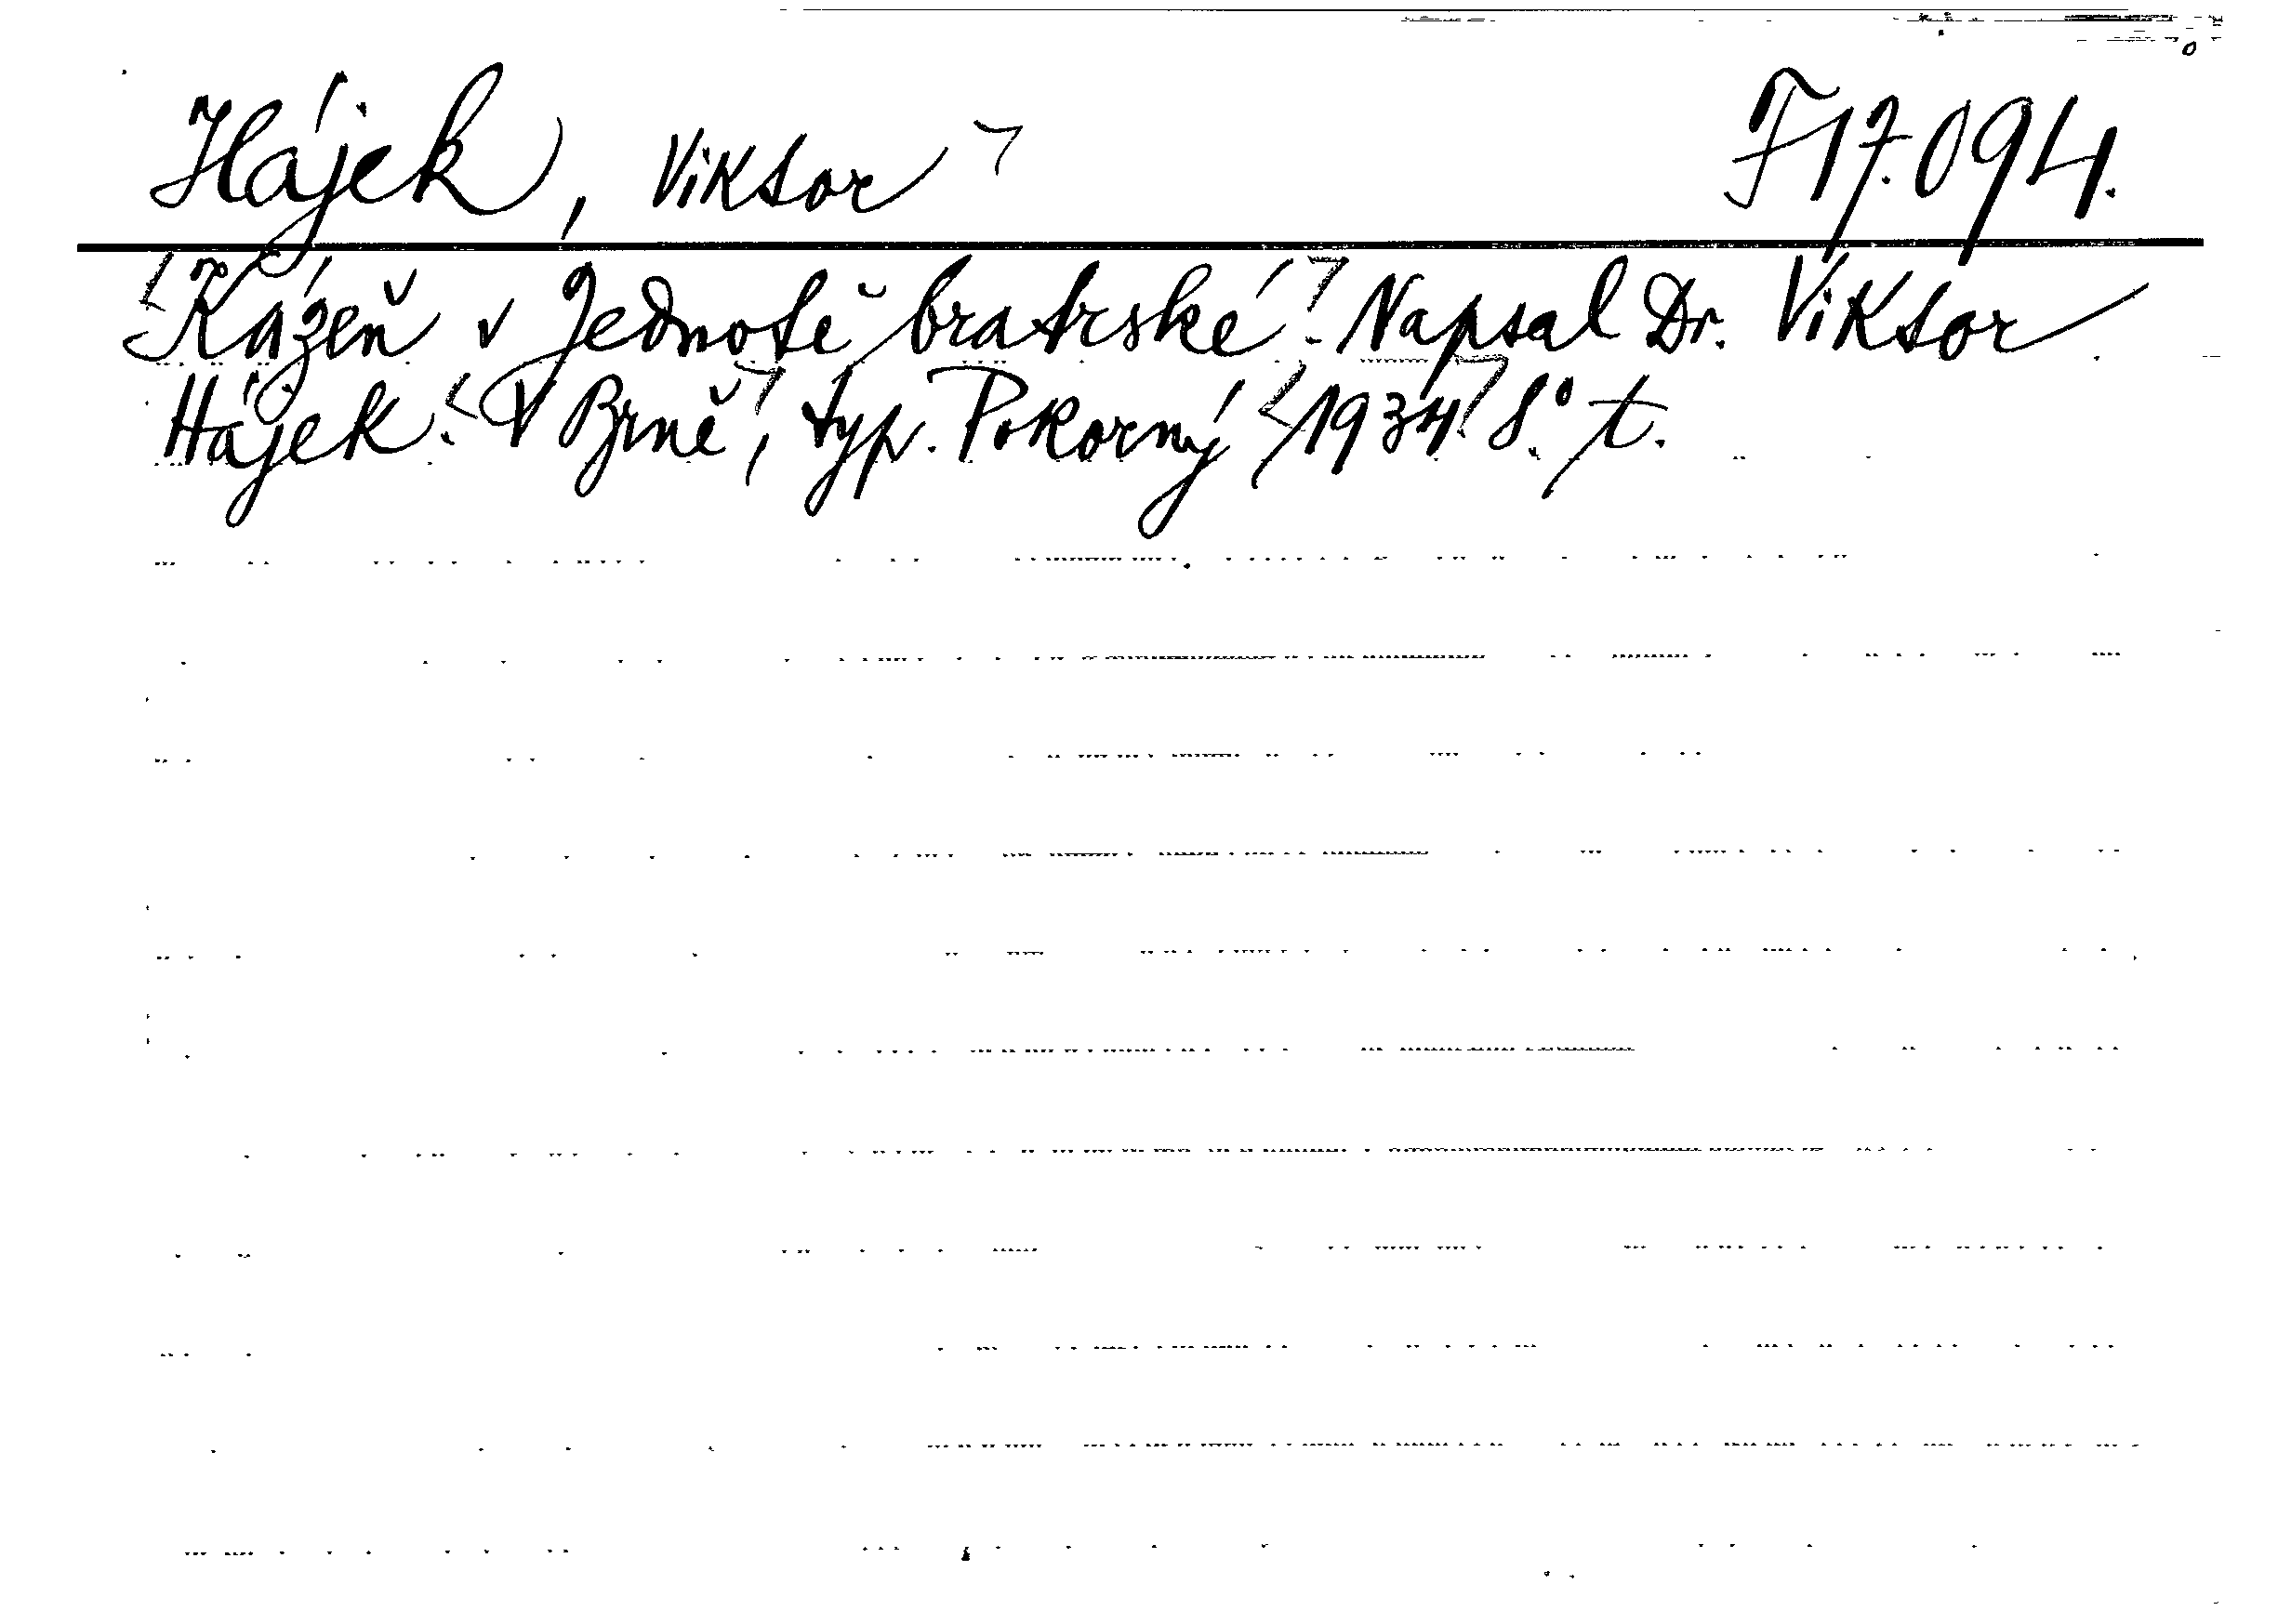 Hájek, Viktor F17.094.
Kázeň v Jednotě bratrské. Napsal Dr. Viktor
Hájek. V Brně, typ. Pokorný 1934. 8.° t.